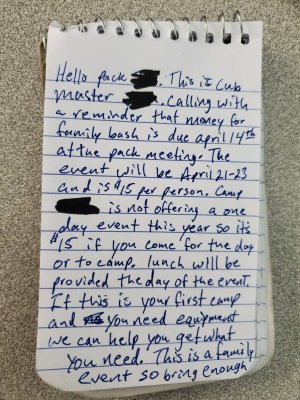 Hello pack . This is Cub
master . Calling with
a reminder that money for
family bash is due april 14th
at the pack meeting. The
event will be April 21-23
and is $15 per person. Camp
is not offering a one
day event this year so its
$15 if you come for the day
or to camp. lunch will be
provided the day of the event.
If this is your first camp
and you need equipment
we can help you get what
you need. This is a family
event so bring enough